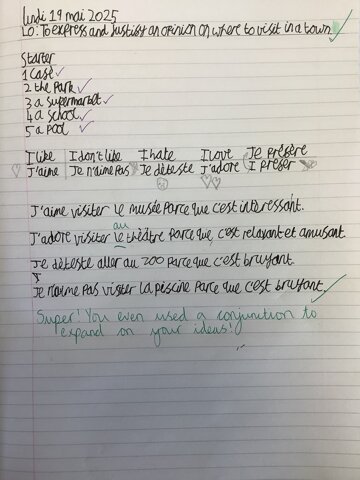 lundi 19 mai 2025
LO: To express and justify an opinion on where to visit in a town
Starter
1 case
2 the park
3 a supermarket
4 a school
5 a pool
I like I don't like I hate I love Je préfère
J'aime Je n'aime pas Je déteste J'adore I prefer
J'aime visiter le musée parce que c'est intéressant.
au
J'adore visiter le théâtre parce que, c'est relaxant et amusant.
Je déteste aller au zoo parce que c'est bruyant.
Je n'aime pas visiter la piscine parce que c'est bruyant.
Super! You even used a conjunction to
expand on your ideas!